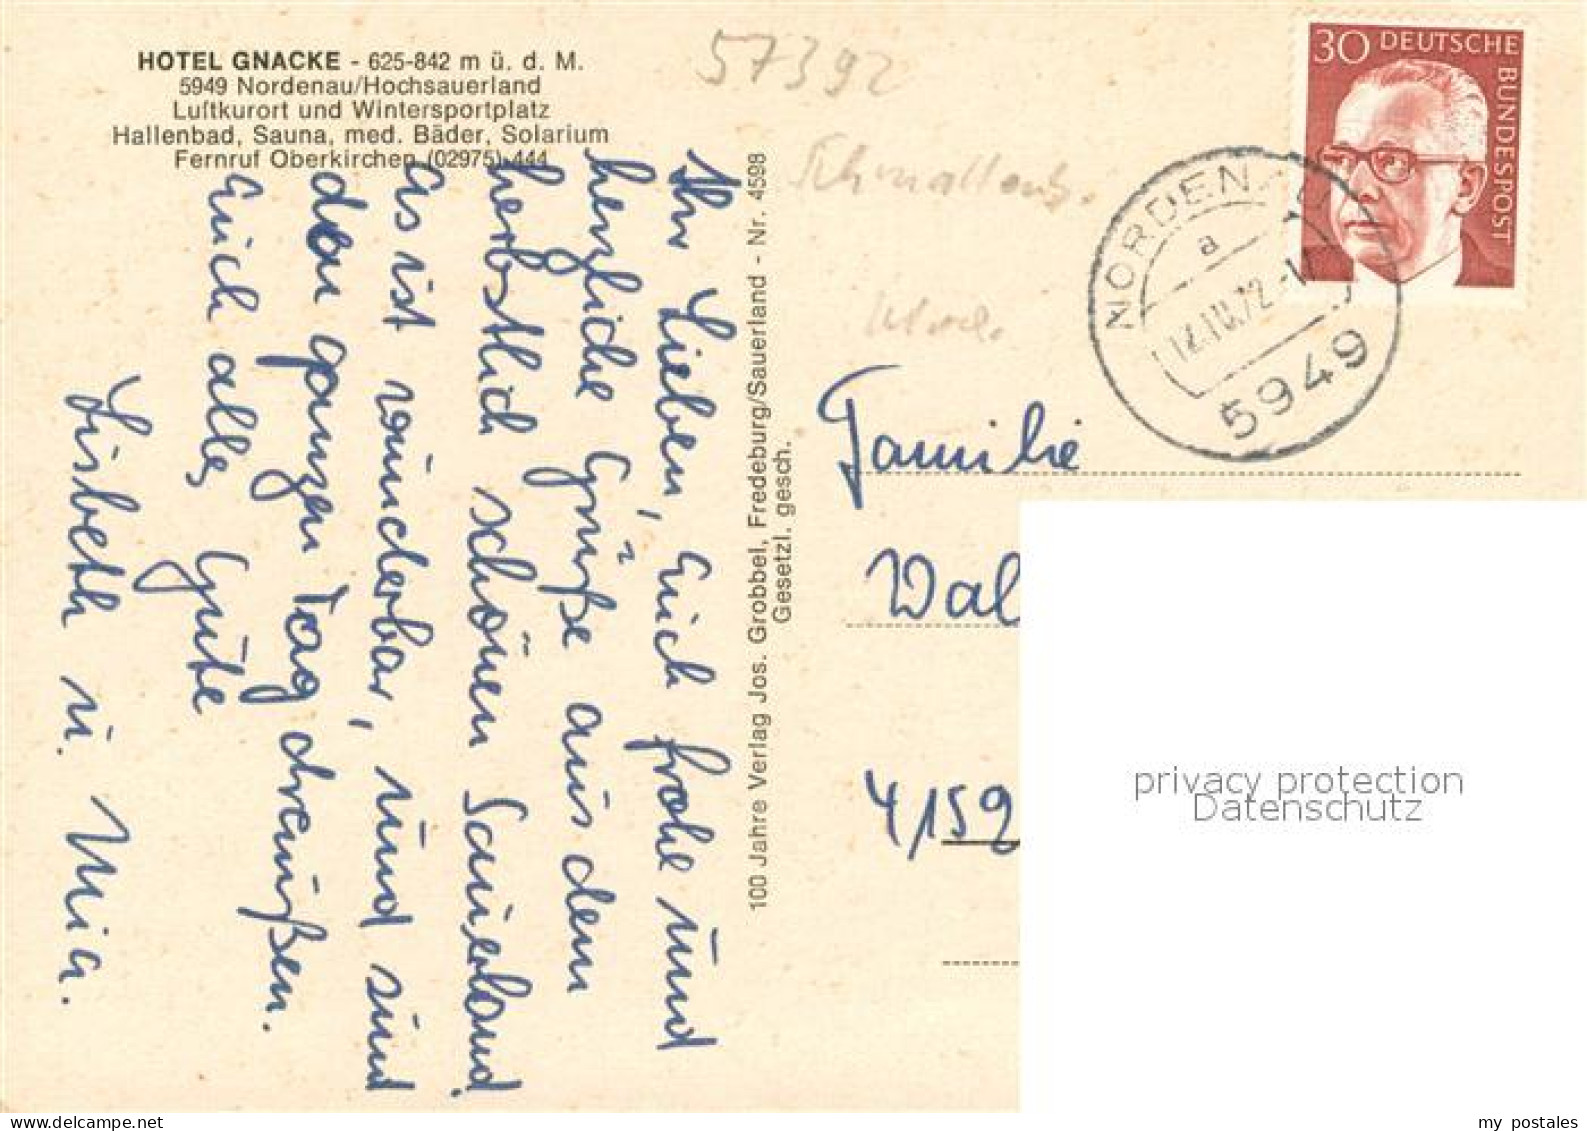 HOTEL GNACKE - 625-842 m ü. d. M.
5949 Nordenau/Hochsauerland
Luftkurort und Wintersportplatz
Hallenbad, Sauna, med. Bäder, Solarium
Fernruf Oberkirchen (02975) 444
57392
30 DEUTSCHE
BUNDESPOST
NORDENAU
a
72
5949
Ihr Lieben, Euch frohe und
herzliche Grüße aus dem
herbstlich schönen Sauerland.
Es ist wunderbar, und sind
den ganzen Tag draußen.
Euch alles Gute
Lisbeth u. Mia.
100 Jahre Verlag Jos. Grobbel, Fredeburg/Sauerland - Nr. 4598
Gesetzl. gesch.
Familie
Wal
4159
privacy protection
Datenschutz
my postales